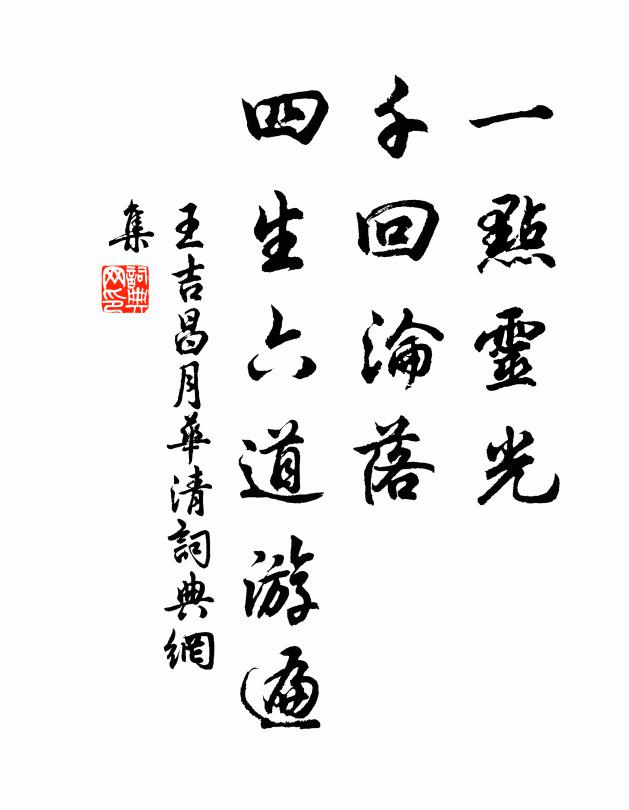 一點靈光
千回淪落
四生六道游遍
王吉昌月華清詞典網
集
詞典
网印